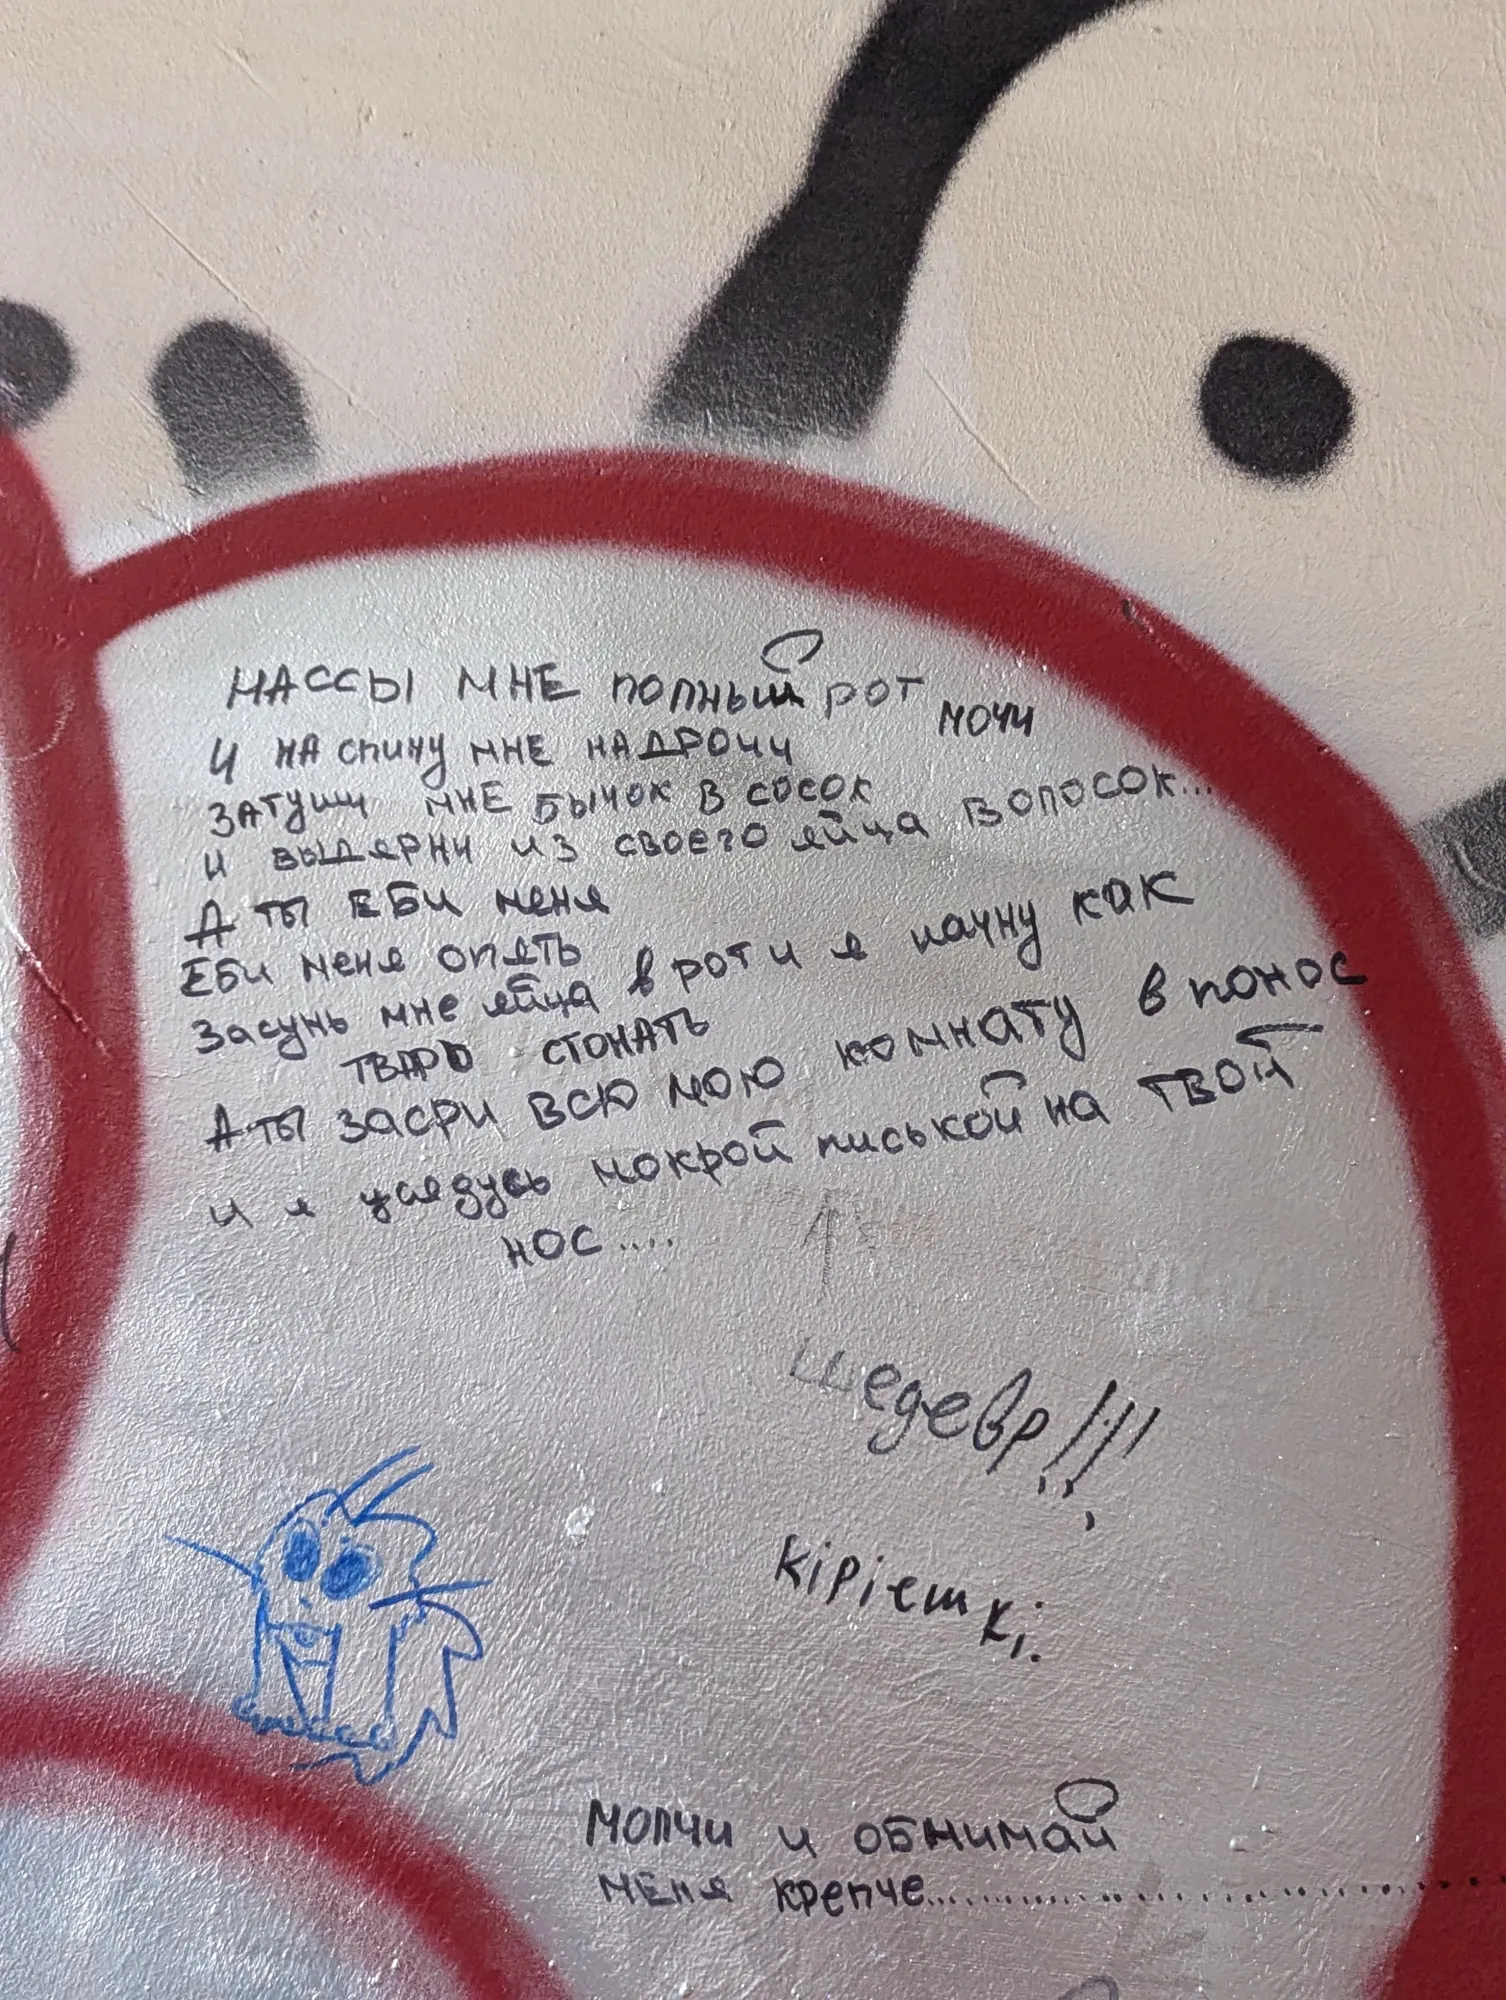 НАССЫ МНЕ ПОЛНЫЙ РОТ МОЧИ
И НА СПИНУ МНЕ НАДРОЧИ
ЗАТУШИ МНЕ БЫЧОК В СОСОК
И ВЫДЕРНИ ИЗ СВОЕГО ЯЙЦА ВОЛОСОК...
А ТЫ ЕБИ МЕНЯ
ЕБИ МЕНЯ ОПЯТЬ
Засунь мне яйца в рот и я начну как
ТВАРЬ СТОНАТЬ
А ТЫ ЗАСРИ ВСЮ МОЮ КОМНАТУ В ПОНОС
и я усядусь мокрой писькой на ТВОЙ
НОС....
шедевр!!!
кіріешкі.
МОЛЧИ И ОБНИМАЙ
МЕНЯ крепче...............................